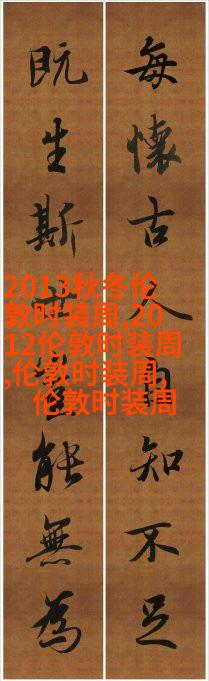 每懷古人自知不足
既生斯世能無為
2013秋冬伦
敦时装周,20
12伦敦时装周
,伦敦时装周,
伦敦时装周